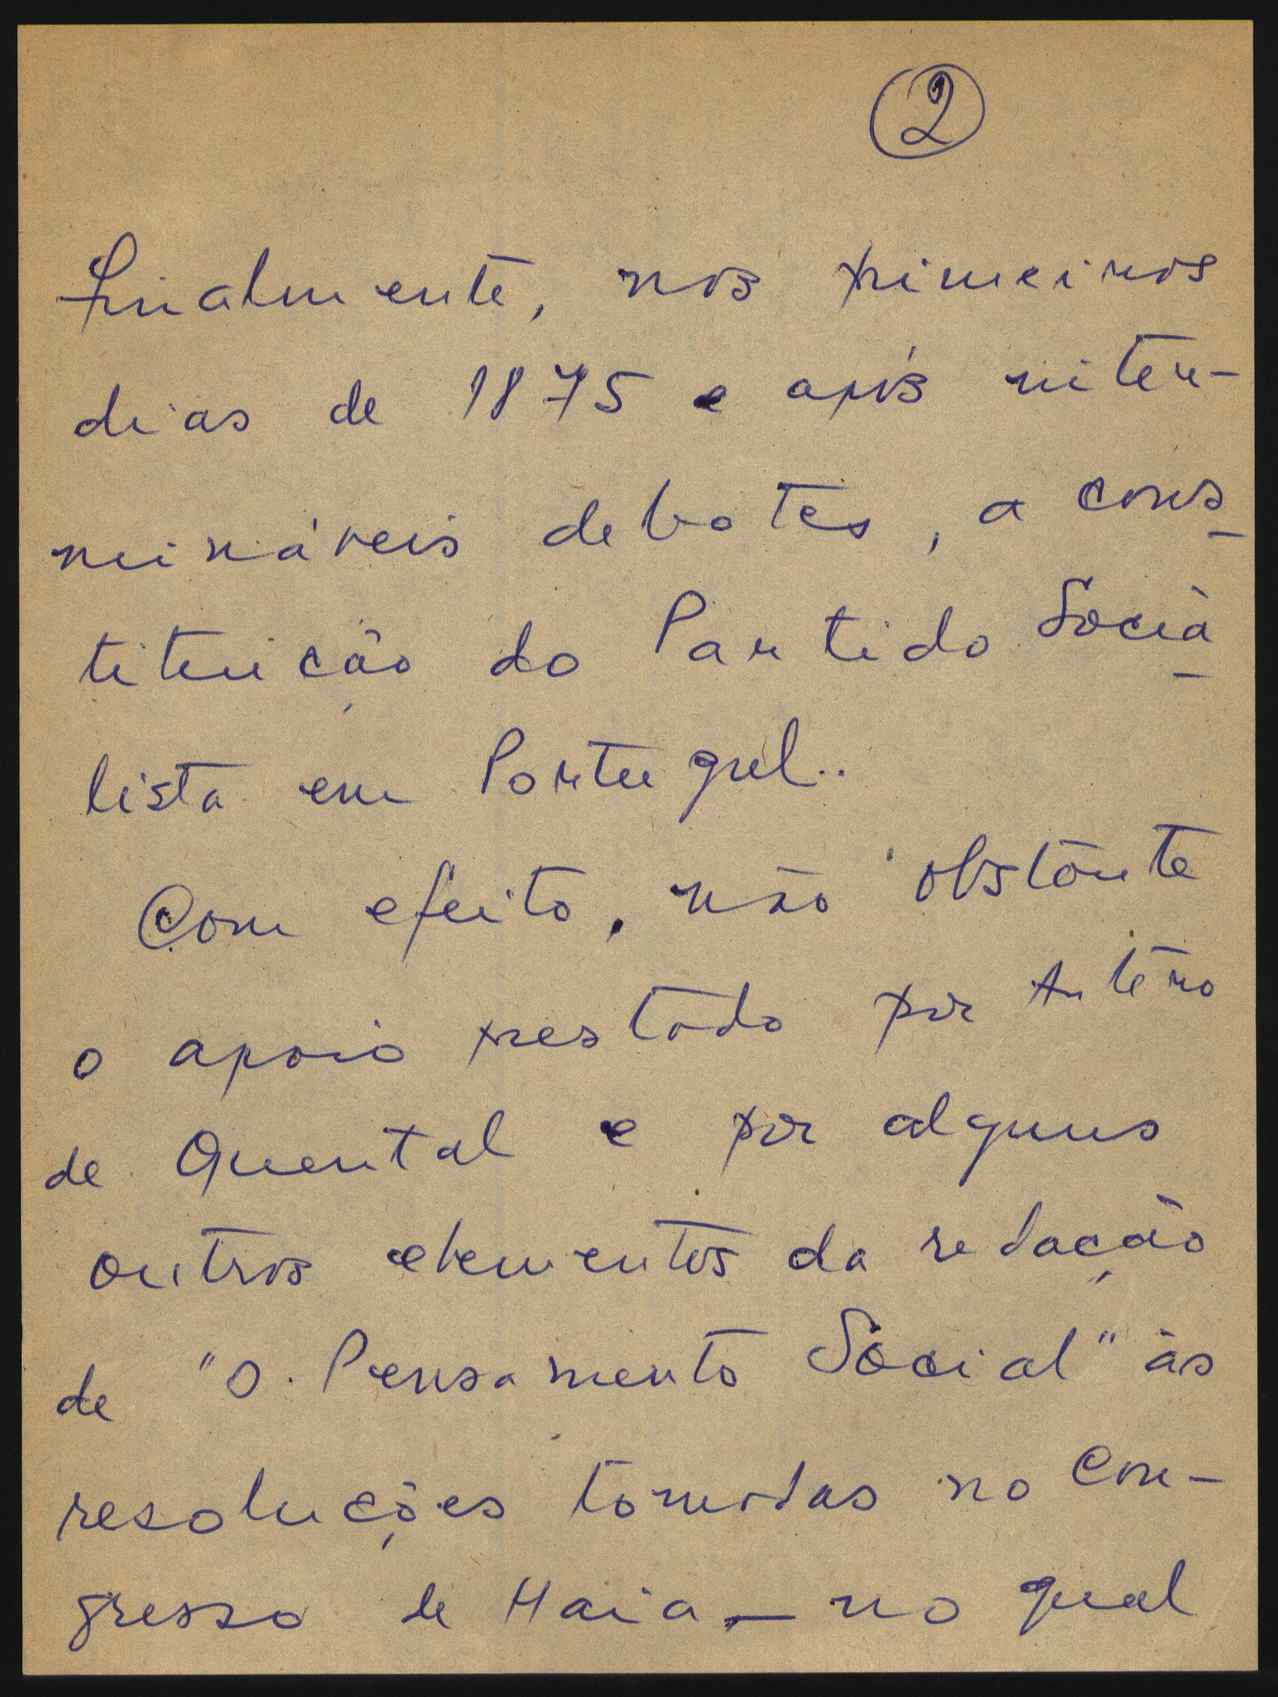 2
finalmente, nos primeiros
dias de 1875 e após inter-
mináveis debates, a cons-
tituição do Partido Socia-
lista em Portugal..
Com efeito, não obstante
o apoio prestado por Antero
de Quental e por alguns
outros elementos da redação
de "O Pensamento Social" às
resoluções tomadas no Con-
gresso de Haia — no qual